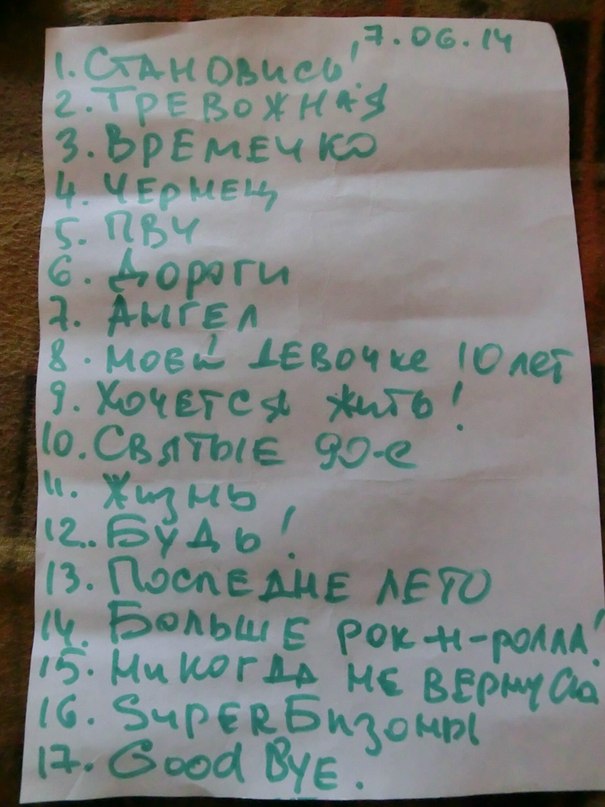 7.06.14
1. Становись!
2. Тревожная
3. Времечко
4. Чернец
5. ПВЧ
6. Дороги
7. Ангел
8. моей девочке 10 лет
9. Хочется жить!
10. Святые 90-е
11. Жизнь
12. Будь!
13. Последне лето
14. Больше рок-н-ролла!
15. Никогда не вернусь
16. SuperБизоны
17. Good Bye.